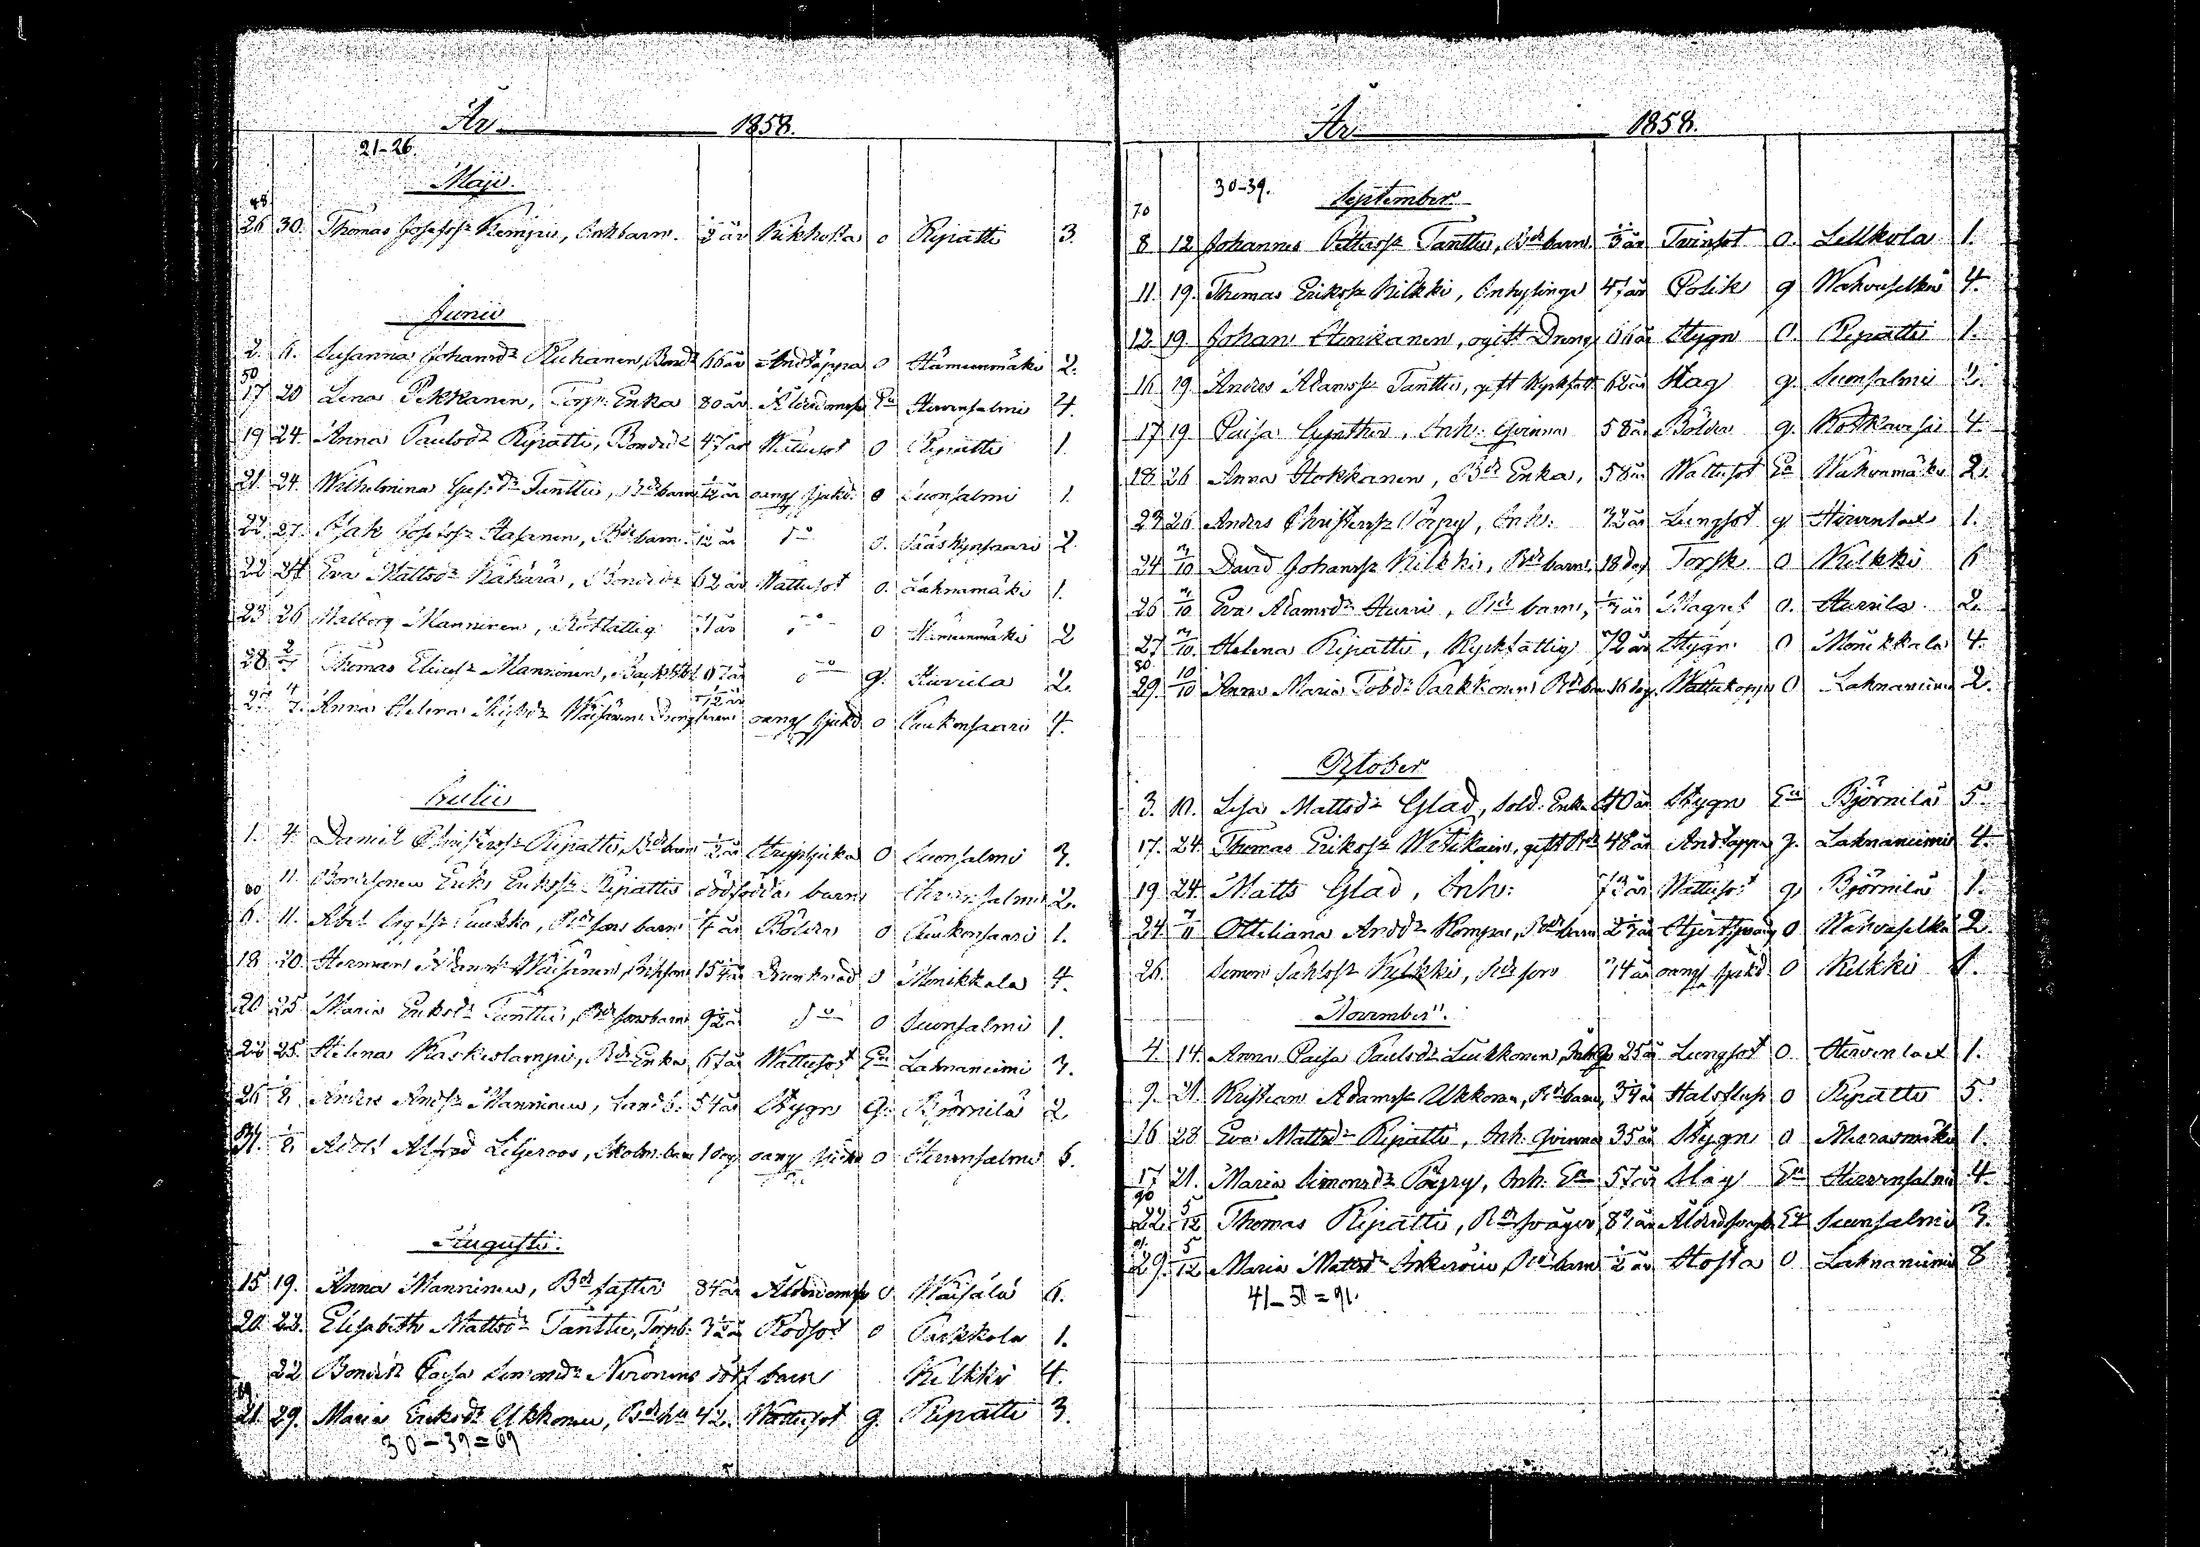 År 1858.
21-26.
Maji.
48
26 30. Thomas Josefss: Kempi, Inh barn. ½ år Kikhosta o Ripatti 3.
Junii
2. 6. Susanna Johansd: Riikanen, Bond: 66 år Andtäppa o Hämeenmäki 2.
50
17 20 Lena Pekkanen, Torp: Enka 80 år Ålderdoms En Hirvensalmi 4.
19 24. Anna Paulsd: Ripatti, Bonded: 47 år Wattusot o Ripatti 1.
21. 24. Wilhelmina Gust:d: Tanttu, Bd barn år oang sjukd: o Suonsalmi 1.
22 27. Isak Josefss: Hasanen, Bd barn år do o. Sääskynsaari 2
22 24 Eva Mattsd: Kähärä, Bonded: 62 år Wattusot o. Lahnamäki 1.
23 26 Walborg Manninen, Rotfattig 71 år do o Hämeenmäki 2
28 2/7 Thomas Manninen, do g. Hurula 2.
4/7. Anna Helena Waisänen, oang sjukd o Puukonsaari 4.
Julii
1. 4. Daniel Christerss: Ripatti, Bd barn ½ år o Suonsalmi 3.
60 11. Bondsonen Eriks Erikss: Ripattis dödfödda barn Hirvensalmi 2.
6. 11. Abel Puukko, Bd sons barn år Bölder o Puukonsaari 1.
18 20. Herman Adamss: Waisänen, år Drunknad o Monikkala 4.
20 25 Maria Eriksd: Tanttu, Bd sons barn 9½ år do o Suonsalmi 1.
22 25. Helena Kaskeslampi, Bd Enka 67 år Wattusot En Lahnaniemi 3.
26 1/8 Anders Andss: Manninen, Landb: 54 år Stygn g. Björnilä 2.
31. 1/8 Adolf Alfred Liljeroos, barn 1 dag oang sjukd o Hirvensalmi 6.
Augusti.
15 19. Anna Manninen, Bd faster 84 år Ålderdoms o Waisälä 6.
20. 22. Elisabeth Mattsd: Tanttu, Torpb: 3½ år Rödsot o Parkkola 1.
22 Bonded: Caisa Simonsd: Nironens döf barn Kilkki 4.
69
21. 29. Maria Eriksd: Ukkonen, Bd h:u 42. Wattusot g. Ripatti 3.
30-39=69
År 1858.
30-39. September
70
8 12 Johannes Petterss: Tanttu, Bd barn. år Tvinsot o. Lellkola 1.
11. 19. Thomas Erikss: Kilkki, Inhysinge 47 år Colik g Wahvaselkä 4.
12 19 Johan Henkanen, ogift Dreng 66 år Stygn o. Ripatti 1.
16 19. Anders Adamss: Tanttu, gift Kyrkfatt 62 år Slag g. Suonsalmi 2.
17 19 Caisa Gynther, Inh: Qvinna 58 år Bölder g. Kotkavesi 4.
18 26 Anna Hokkanen, Bd Enka, 58 år Wattusot En Wahvamäki 2.
23 26 Anders Christerss: Pöyry, Inh: 72 år Lungsot g Hirvenlax 1.
24 3/10 David Johanss: Kilkki, Bd barn 18 dag Torsk o Kilkki 6
26 3/10 Eva Adamsd: Hurri, Bd barn, år Magref o. Hurrila 2.
27 3/10. Helena Ripatti, Kyrkfattig 72 år Stygn o Monikkala 4.
80
29. 10/10 Anna Maria Tobd: Parkkonen Bd ba 16 dag. Wattukoppor o Lahnaniemi 2.
October
3. 10. Lisa Mattsd: Glad, Sold: Enka 40 år Stygn En Björnilä 5.
17. 24. Thomas Erikss: Witikain, gift Bd 48 år Andtäppa g. Lahnaniemi 4.
19 24. Matts Glad, Inh: 73 år Wattusot g Björnilä 1.
24 7/11 Ottiliana Andd: Kompa, Bd barn år Hjertsprång o Wahvaselkä 2.
26. Simon Kilkki, Bd son 14 år oang sjukd o Kilkki 1.
November.
4 14. Anna Caisa Paulsd: Liukkonen, Inh: 25 år Lungsot o. Hirvenlax 1.
9. 21. Kristian Adamss: Ukkonen, Bd barn, år Halsfluss o Ripatti 5.
16 28 Eva Mattsd: Ripatti, Inh: Qvinna 35 år Stygn o Merrasmäki 1.
17 21. Maria Simonsd: Pöyry, Inh: En 57 år Slag En Hirvensalmi 4
90
22. 5/12 Thomas Ripatti, Bd sväger, 82 år Ålderdoms En Suonsalmi 3.
91.
29. 5/12 Maria Mattsd: Inkeroin, Bd barn ½ år Hosta o Lahnaniemi 8
41-50=91.